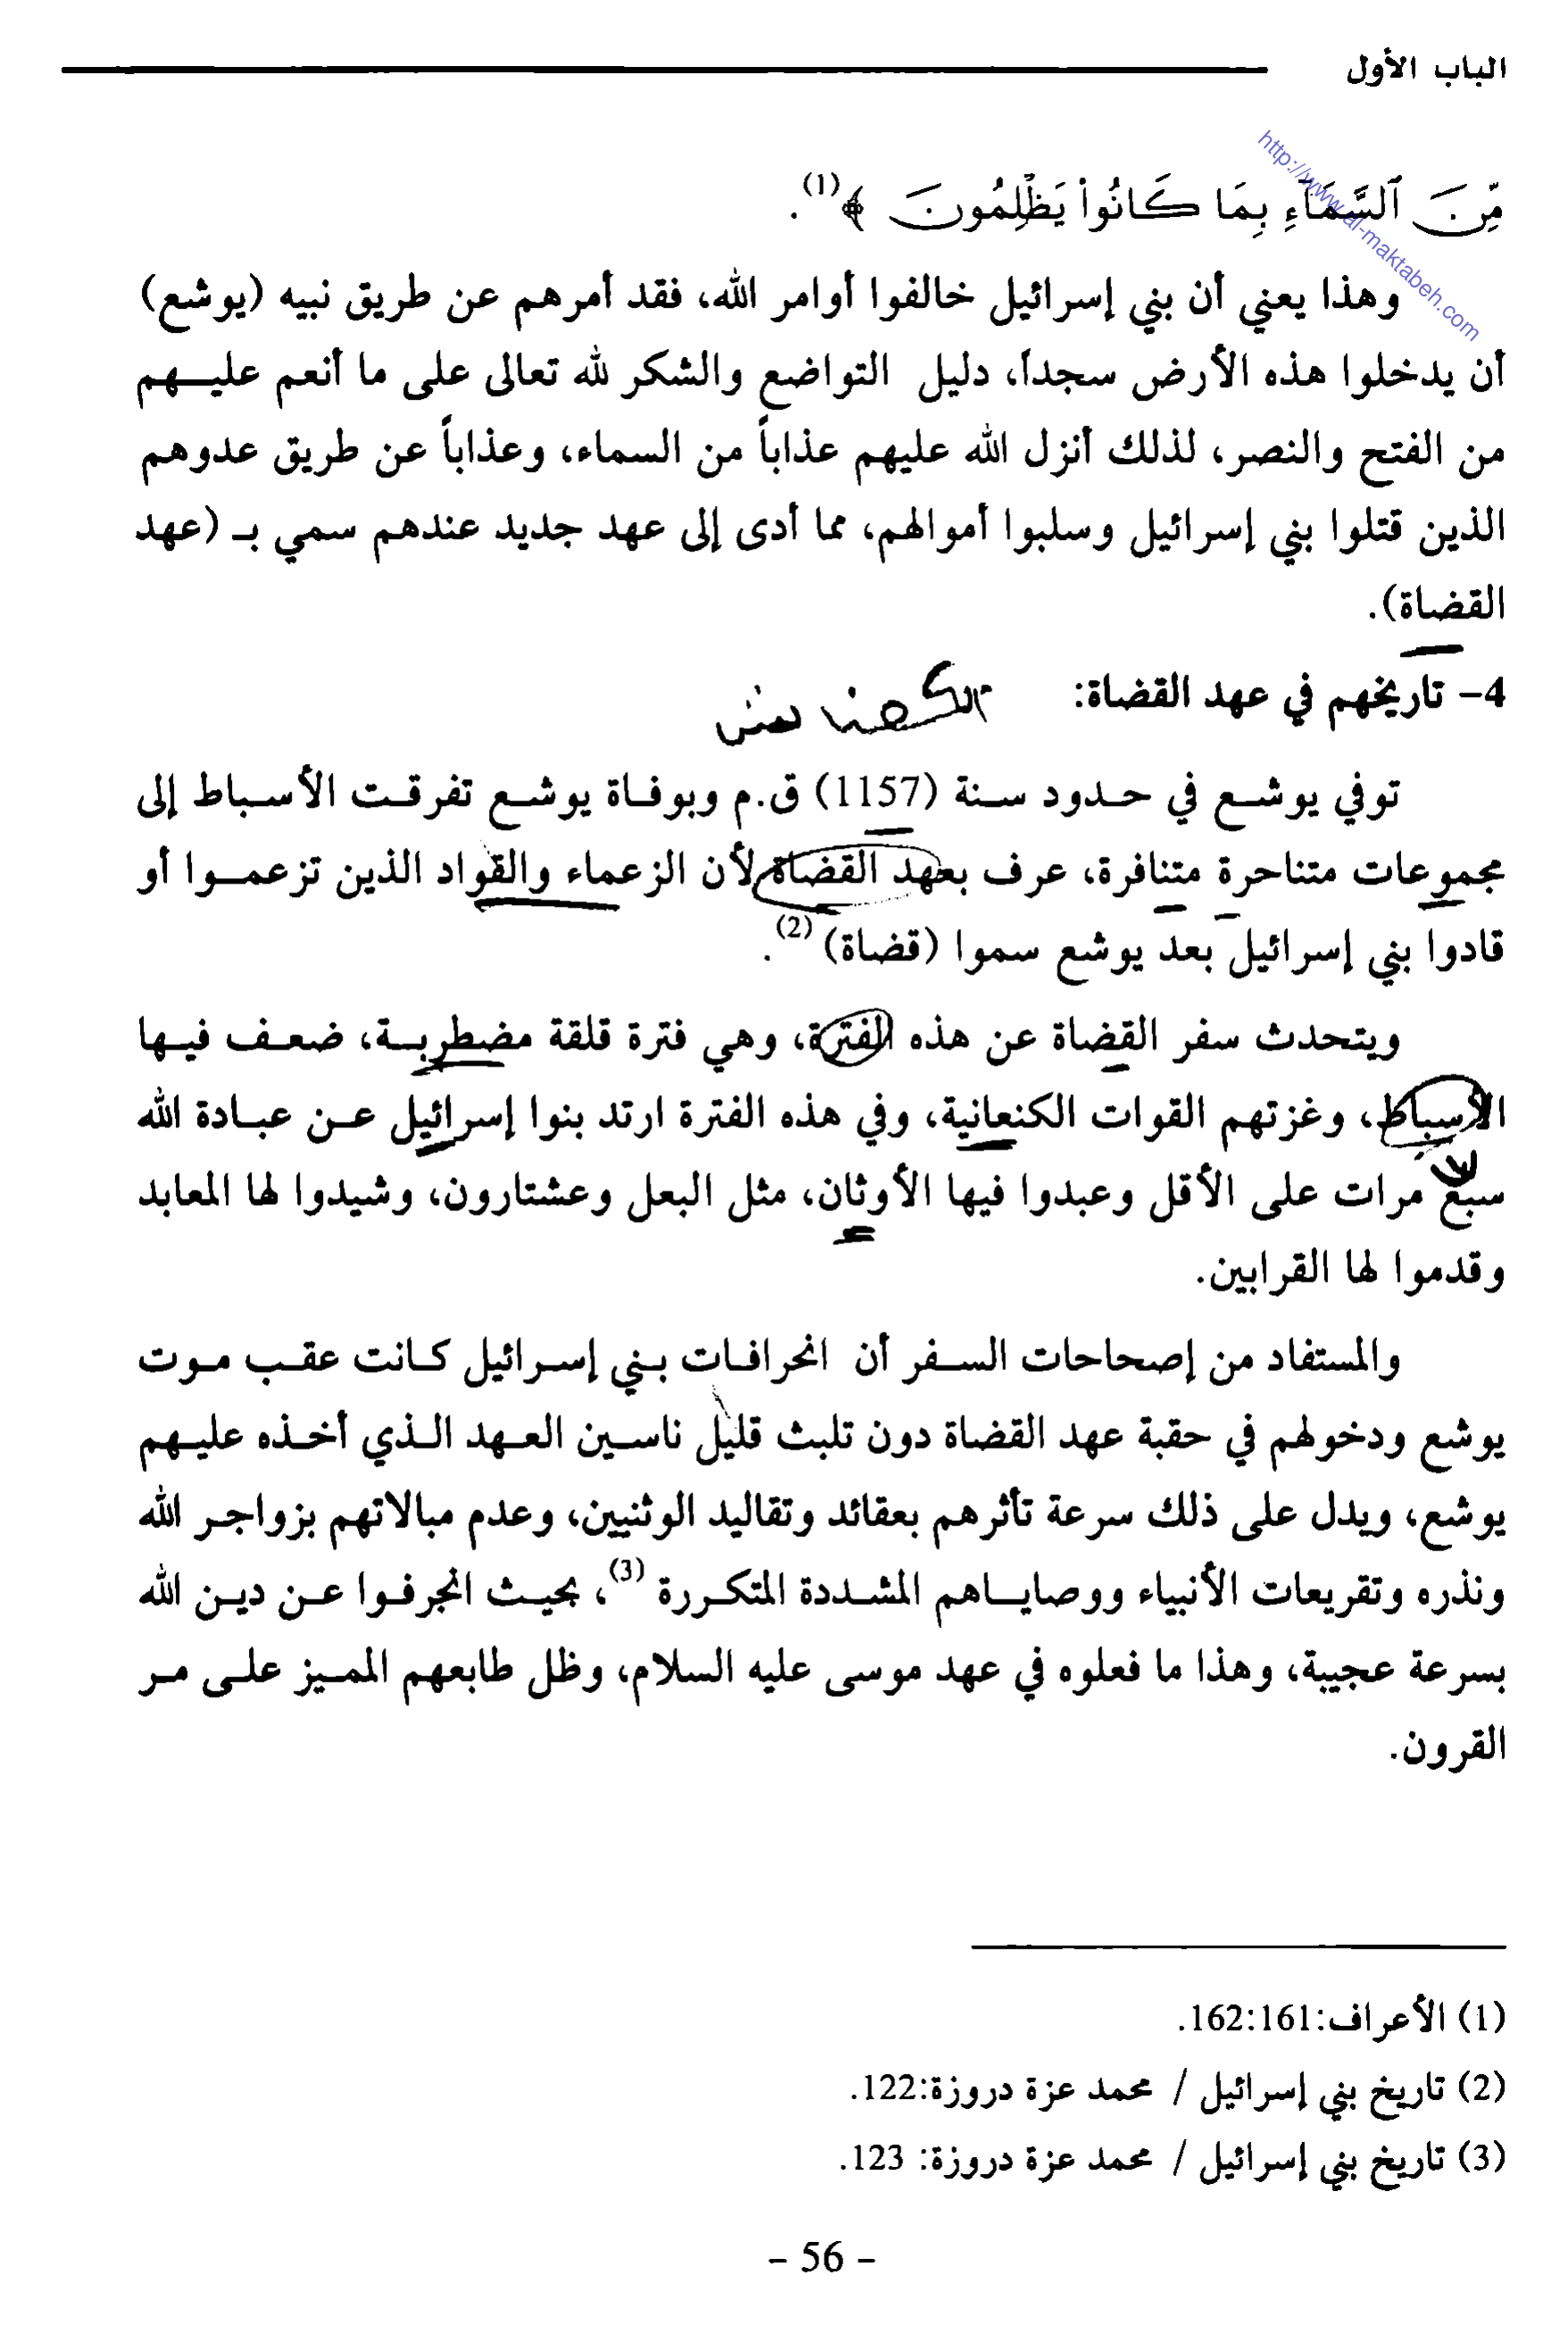 الباب الأول
http://www.al-maktabeh.com
مِّنَ ٱلسَّمَآءِ بِمَا كَانُواْ يَظْلِمُونَ ﴾(1).
وهذا يعني أن بني إسرائيل خالفوا أوامر الله، فقد أمرهم عن طريق نبيه (يوشع)
أن يدخلوا هذه الأرض سجداً، دليل التواضع والشكر لله تعالى على ما أنعم عليهم
من الفتح والنصر، لذلك أنزل الله عليهم عذاباً من السماء، وعذاباً عن طريق عدوهم
الذين قتلوا بني إسرائيل وسلبوا أموالهم، مما أدى إلى عهد جديد عندهم سمي بـ (عهد
القضاة).
4- تاريخهم في عهد القضاة:
توفي يوشع في حدود سنة (1157) ق.م وبوفاة يوشع تفرقت الأسباط إلى
مجموعات متناحرة متنافرة، عرف بعهد القضاة لأن الزعماء والقواد الذين تزعموا أو
قادوا بني إسرائيل بعد يوشع سموا (قضاة) (2).
ويتحدث سفر القضاة عن هذه الفترة، وهي فترة قلقة مضطربة، ضعف فيها
الأسباط، وغزتهم القوات الكنعانية، وفي هذه الفترة ارتد بنوا إسرائيل عن عبادة الله
سبع مرات على الأقل وعبدوا فيها الأوثان، مثل البعل وعشتارون، وشيدوا لها المعابد
وقدموا لها القرابين.
والمستفاد من إصحاحات السفر أن انحرافات بني إسرائيل كانت عقب موت
يوشع ودخولهم في حقبة عهد القضاة دون تلبث قليل ناسين العهد الذي أخذه عليهم
يوشع، ويدل على ذلك سرعة تأثرهم بعقائد وتقاليد الوثنيين، وعدم مبالاتهم بزواجر الله
ونذره وتقريعات الأنبياء ووصاياهم المشددة المتكررة (3)، بحيث انجرفوا عن دين الله
بسرعة عجيبة، وهذا ما فعلوه في عهد موسى عليه السلام، وظل طابعهم المميز على مر
القرون.
(1) الأعراف:162:161.
(2) تاريخ بني إسرائيل / محمد عزة دروزة:122.
(3) تاريخ بني إسرائيل / محمد عزة دروزة: 123.
- 56 -